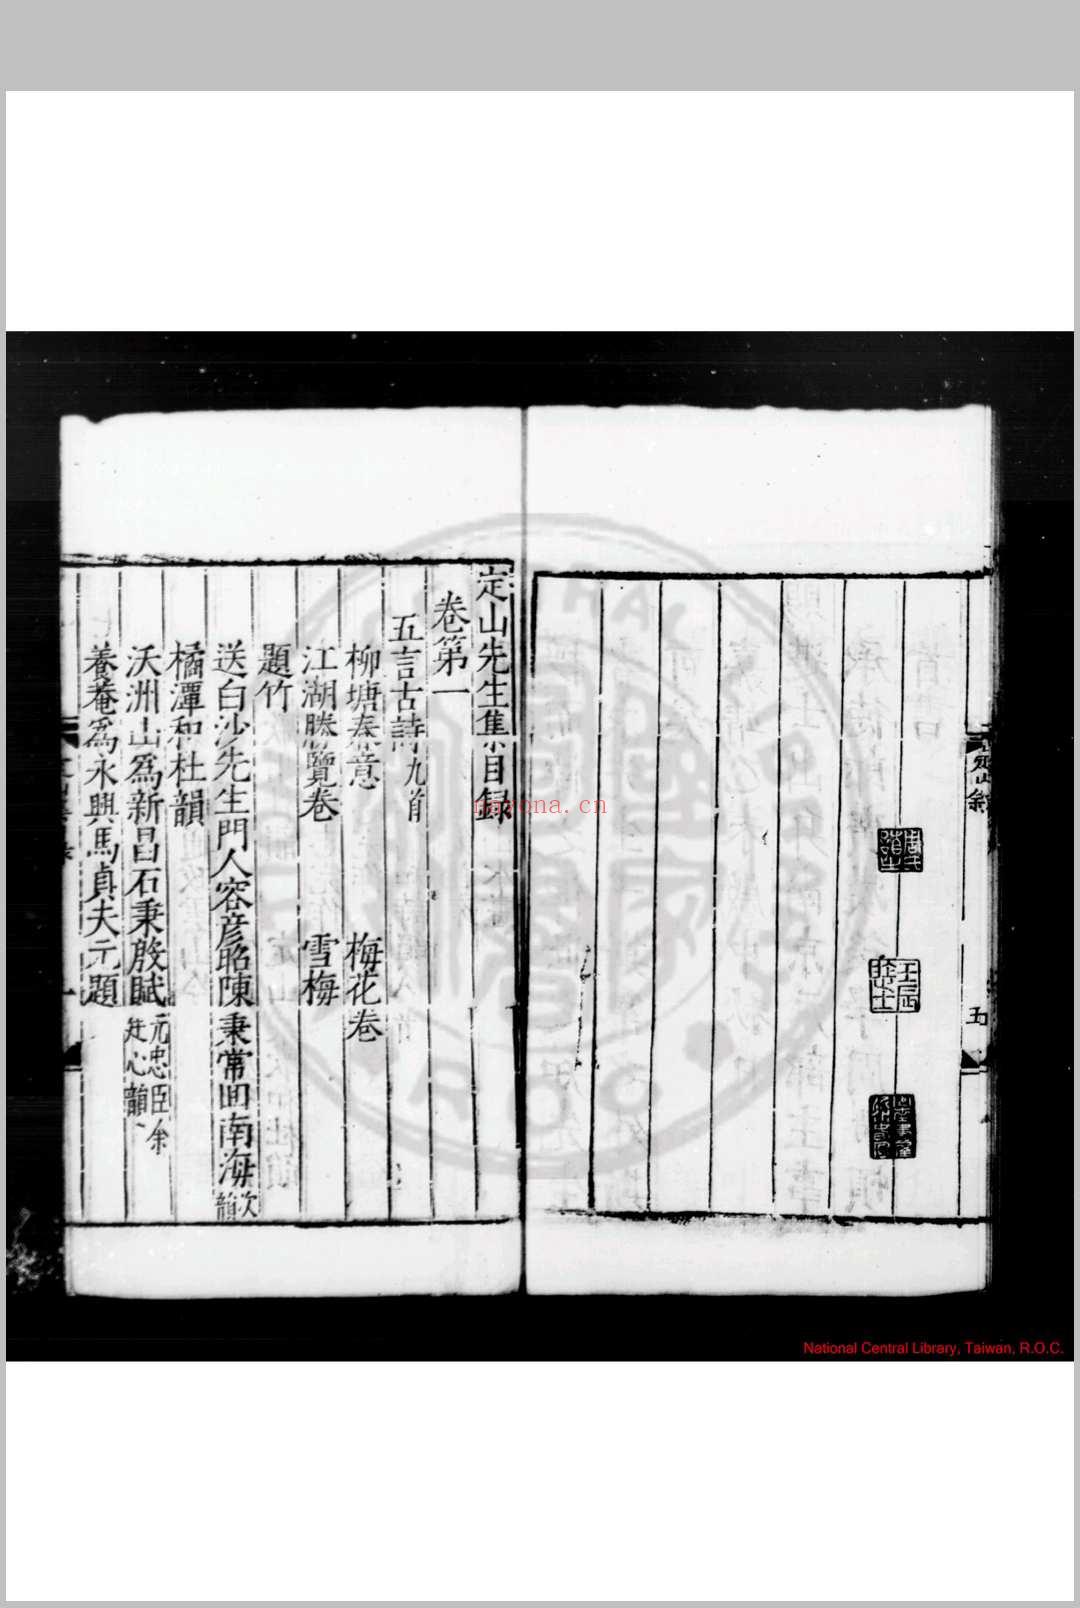 五
定山先生集目録
卷第一
五言古詩九首
柳塘春意 梅花卷
江湖勝覽卷 雪梅
題竹
送白沙先生門人容彦昭陳秉常回南海次韻
橘潭和杜韻
沃洲山爲新昌石秉殷賦元忠臣余廷心韻
養菴爲永興馬貞夫元題
nayona.cn
National Central Library, Taiwan, R.O.C.